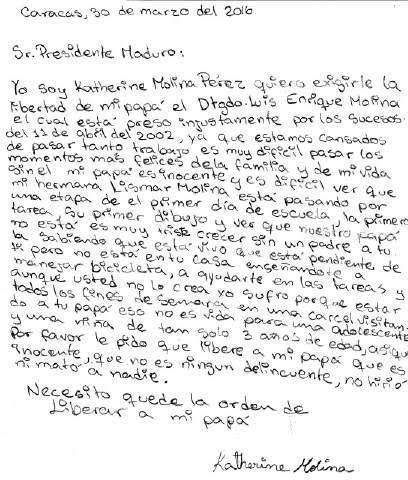 Caracas, 30 de marzo del 2016
Sr. Presidente Maduro:
Yo soy Katherine Molina Pérez quiero exigirle la
libertad de mi papá el Dtgdo. Luis Enrique Molina
el cual está preso injustamente por los sucesos
del 11 de abril del 2002, ya que estamos cansados
de pasar tanto trabajo es muy difícil pasar los
momentos mas felices de la familia y de mi vida
sin el mi papá es inocente y es difícil ver que
mi hermana Lismar Molina está pasando por
una etapa de el primer día de escuela, la primera
tarea, su primer dibujo y ver que nuestro papá
no está es muy triste crecer sin un padre a tu
la sabiendo que está vivo que está pendiente de
ti pero no está en tu casa enseñandote a
manejar bicicleta, a ayudarte en las tareas y
aunque usted no lo crea yo sufro porque estar
todos los fines de semana en una carcel visitan
do a tu papá eso no es vida para una adolescente
y una niña de tam solo 3 años de edad, asique
Por favor le pido que libere a mi papá que es
inocente, que no es ningun delincuente, no hirió
ni mató a nadie.
Necesito que de la orden de
Liberar a mi papá
Katherine Molina